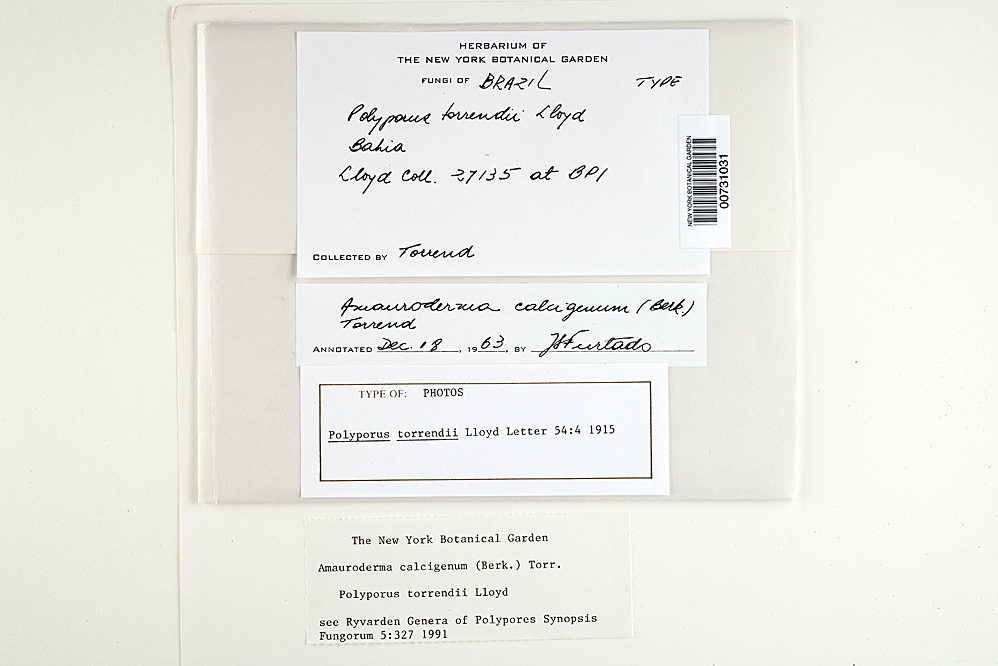 HERBARIUM OF
THE NEW YORK BOTANICAL GARDEN
FUNGI OF BRAZIL TYPE
Polyporus torrendii Lloyd
Bahia
Lloyd Coll. 27135 at BPI
COLLECTED BY Torrend
NEW YORK BOTANICAL GARDEN
00731031
Amauroderma calcigenum (Berk.)
Torrend
ANNOTATED Dec. 18, 1963, BY JS Furtado
TYPE OF: PHOTOS
Polyporus torrendii Lloyd Letter 54:4 1915
The New York Botanical Garden
Amauroderma calcigenum (Berk.) Torr.
Polyporus torrendii Lloyd
see Ryvarden Genera of Polypores Synopsis
Fungorum 5:327 1991